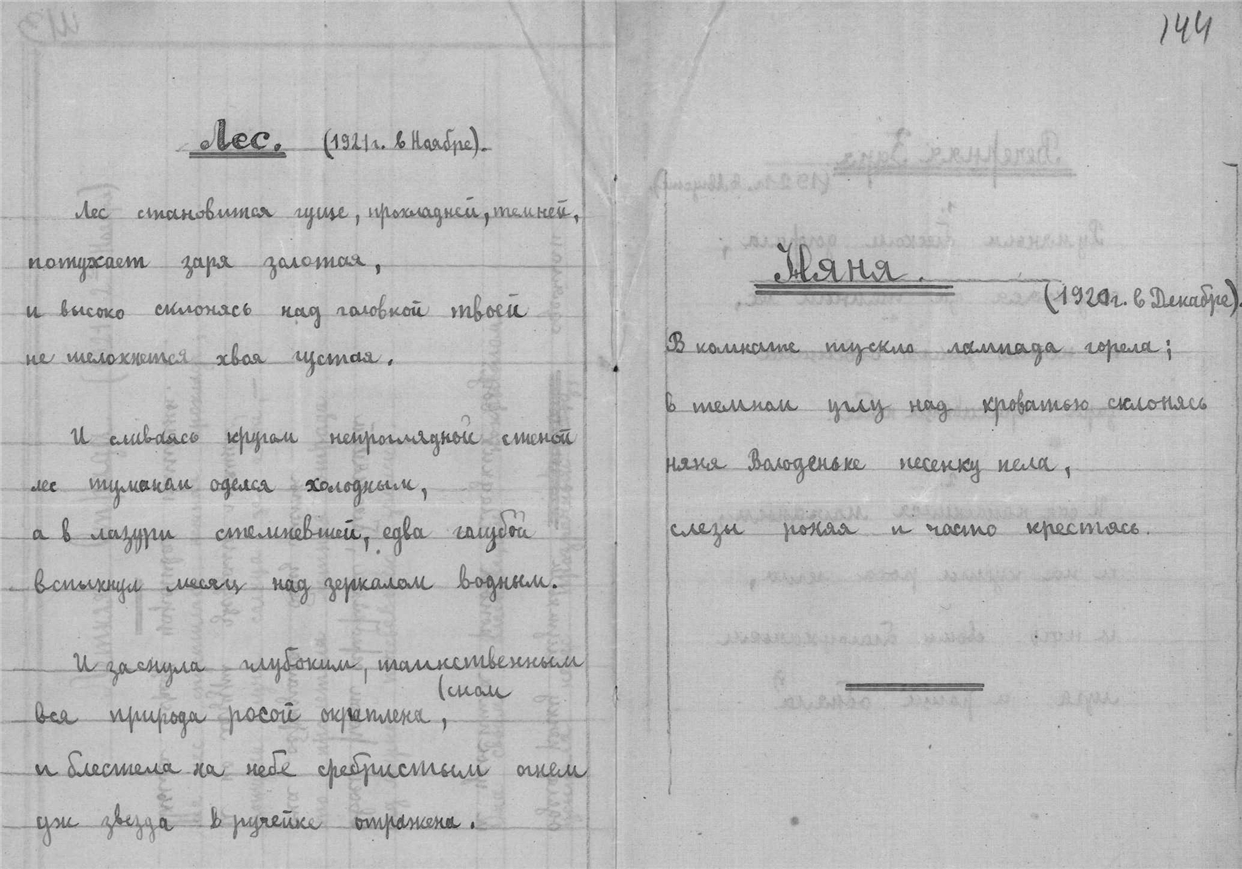 Лес. (1921 г. в Ноябре).
Лес становится гуще, прохладней, темней,
потухает заря золотая,
и высоко склонясь над головкой твоей
не шелохнется хвоя густая.
И сливаясь кругом непроглядной стеной
лес туманом оделся холодным,
а в лазури стемневшей, едва голубой
вспыхнул месяц над зеркалом водным.
И заснула глубоким, таинственным
(сном
вся природа росой окроплена,
и блестела на небе сребристым огнем
уж звезда в ручейке отражена.
144
Няня.
(1921 г. в Декабре).
В комнате тускло лампада горела;
в темном углу над кроватью склонясь
няня Володеньке песенку пела,
слезы роняя и часто крестясь.